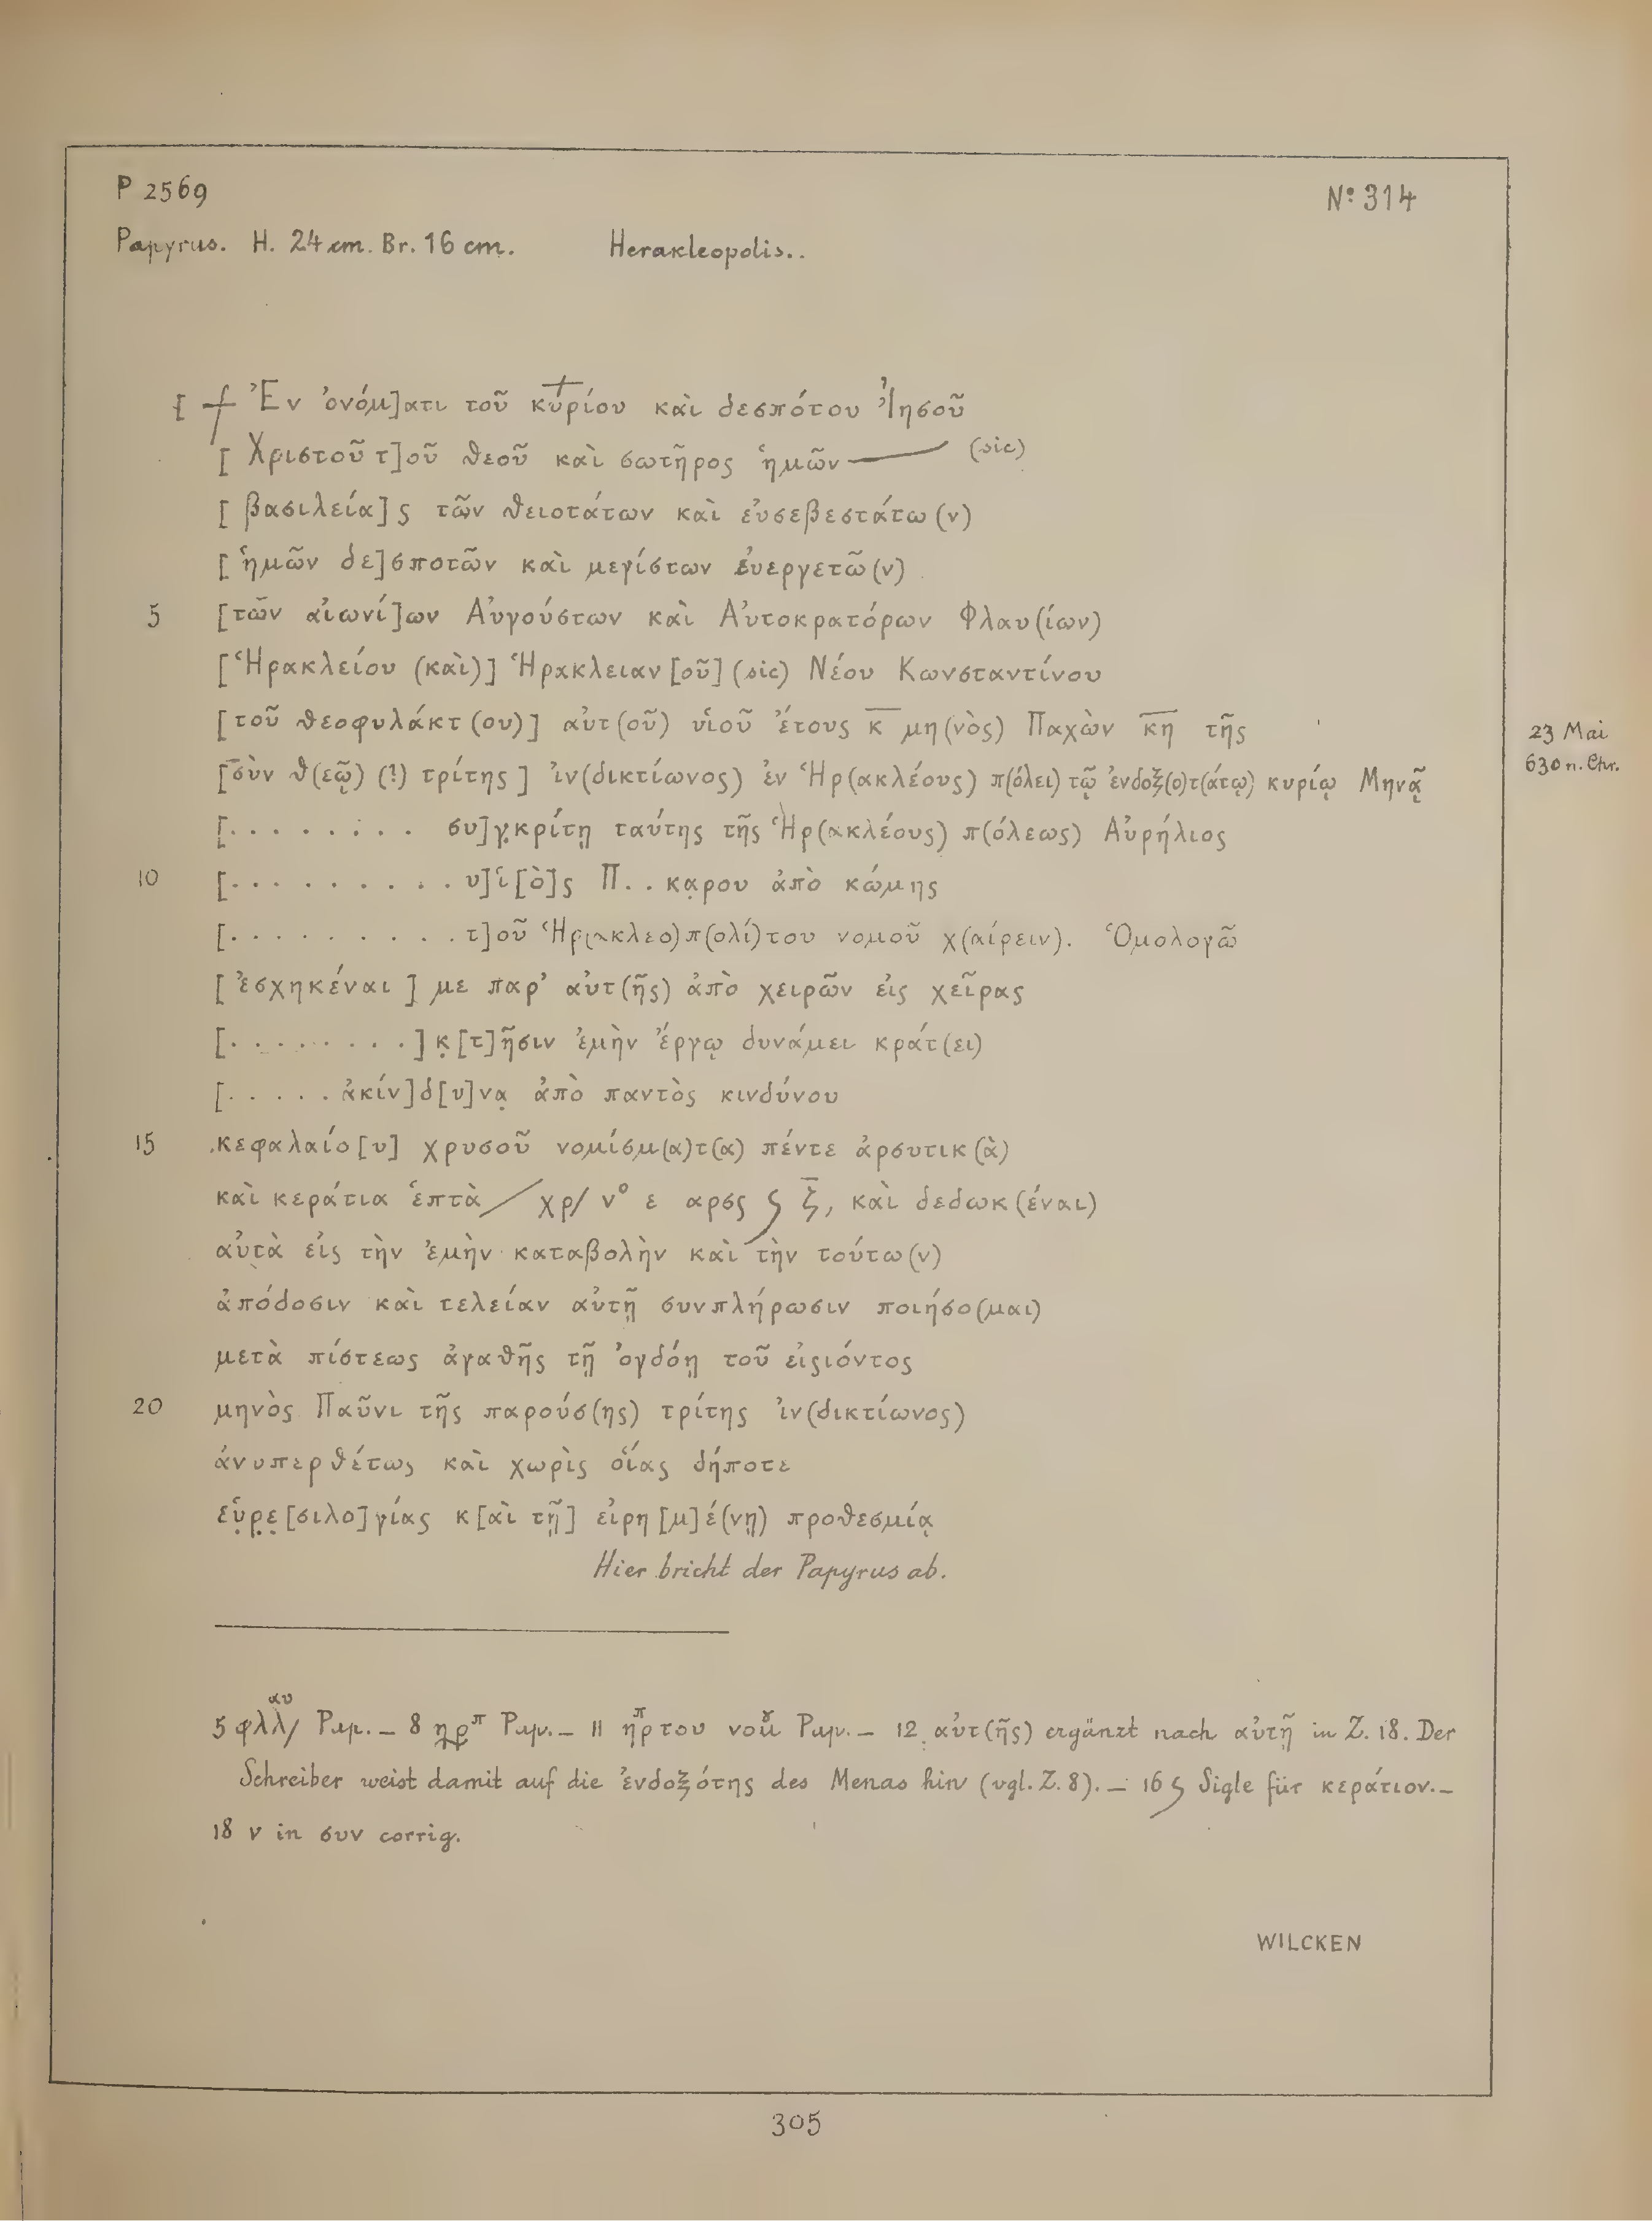 P 2569
N° 314
Papyrus. H. 24 cm. Br. 16 cm. Herakleopolis..
[ ⳨ Ἐν ὀνόμ]ατι τοῦ κυρίου καὶ δεσπότου Ἰησοῦ
[ Χριστοῦ τ]οῦ θεοῦ καὶ σωτῆρος ἡμῶν — (sic)
[ βασιλεία]ς τῶν θειοτάτων καὶ εὐσεβεστάτω(ν)
[ ἡμῶν δε]σποτῶν καὶ μεγίστων εὐεργετῶ(ν)
5 [τῶν αἰωνί]ων Αὐγούστων καὶ Αὐτοκρατόρων Φλαυ(ίων)
[Ἡρακλείου (καὶ)] Ἡρακλειαν[οῦ] (sic) Νέου Κωνσταντίνου
[τοῦ θεοφυλάκτ(ου)] αὐτ(οῦ) υἱοῦ ἔτους κ̅ μη(νὸς) Παχὼν κ̅η̅ τῆς
23 Mai
630 n. Chr.
[σὺν θ(εῷ) (?) τρίτης] ἰν(δικτίωνος) ἐν Ἡρ(ακλέους) π(όλει) τῷ ἐνδοξ(ο)τ(άτῳ) κυρίῳ Μηνᾷ
[. . . . . . . . συ]γ̣κρίτῃ ταύτης τῆς Ἡρ(ακλέους) π(όλεως) Αὐρήλιος
10 [. . . . . . . . . . υ]ἱ[ὸ]ς Π . . κα̣ρου ἀπὸ κώμης
[. . . . . . . . . . τ]οῦ Ἡρ(ακλεο)π(ολί)του νομοῦ χ(αίρειν). Ὁμολογῶ
[ ἐσχηκέναι ] με παρ’ αὐτ(ῆς) ἀπὸ χειρῶν εἰς χεῖρας
[. . . . . . . . ] κ̣[τ]ῆσιν ἐμὴν ἔργῳ δυνάμει κράτ(ει)
[. . . . . ἀκίν]δ[υ]να̣ ἀπὸ παντὸς κινδύνου
15 κεφαλαίο[υ] χρυσοῦ νομίσμ(α)τ(α) πέντε ἀρσυτικ(ὰ)
καὶ κεράτια ἑπτὰ / χρ/ ν° ε αρσς ϛ ζ̅, καὶ δεδωκ(έναι)
αὐτὰ εἰς τὴν ἐμὴν καταβολὴν καὶ τὴν τούτω(ν)
ἀπόδοσιν καὶ τελείαν αὐτῇ συνπλήρωσιν ποιήσο(μαι)
μετὰ πίστεως ἀγαθῆς τῇ ὀγδόῃ τοῦ εἰςιόντος
20 μηνὸς Παῦνι τῆς παρούσ(ης) τρίτης ἰν(δικτίωνος)
ἀνυπερθέτως καὶ χωρὶς οἵας δήποτε
εὑ̣ρ̣ε̣[σιλο]γίας κ[αὶ τῇ] εἰρη[μ]έ(νῃ) προθεσμίᾳ
Hier bricht der Papyrus ab.
5 φλλ/ αυ Pap. – 8 ηρπ Pap. – 11 ηρπτου νομ Pap. – 12 αὐτ(ῆς) ergänzt nach αὐτῇ in Z. 18. Der
Schreiber weist damit auf die ἐνδοξότης des Menas hin (vgl. Z. 8). – 16 ϛ Sigle für κεράτιον. –
18 ν in συν corrig.
WILCKEN
305